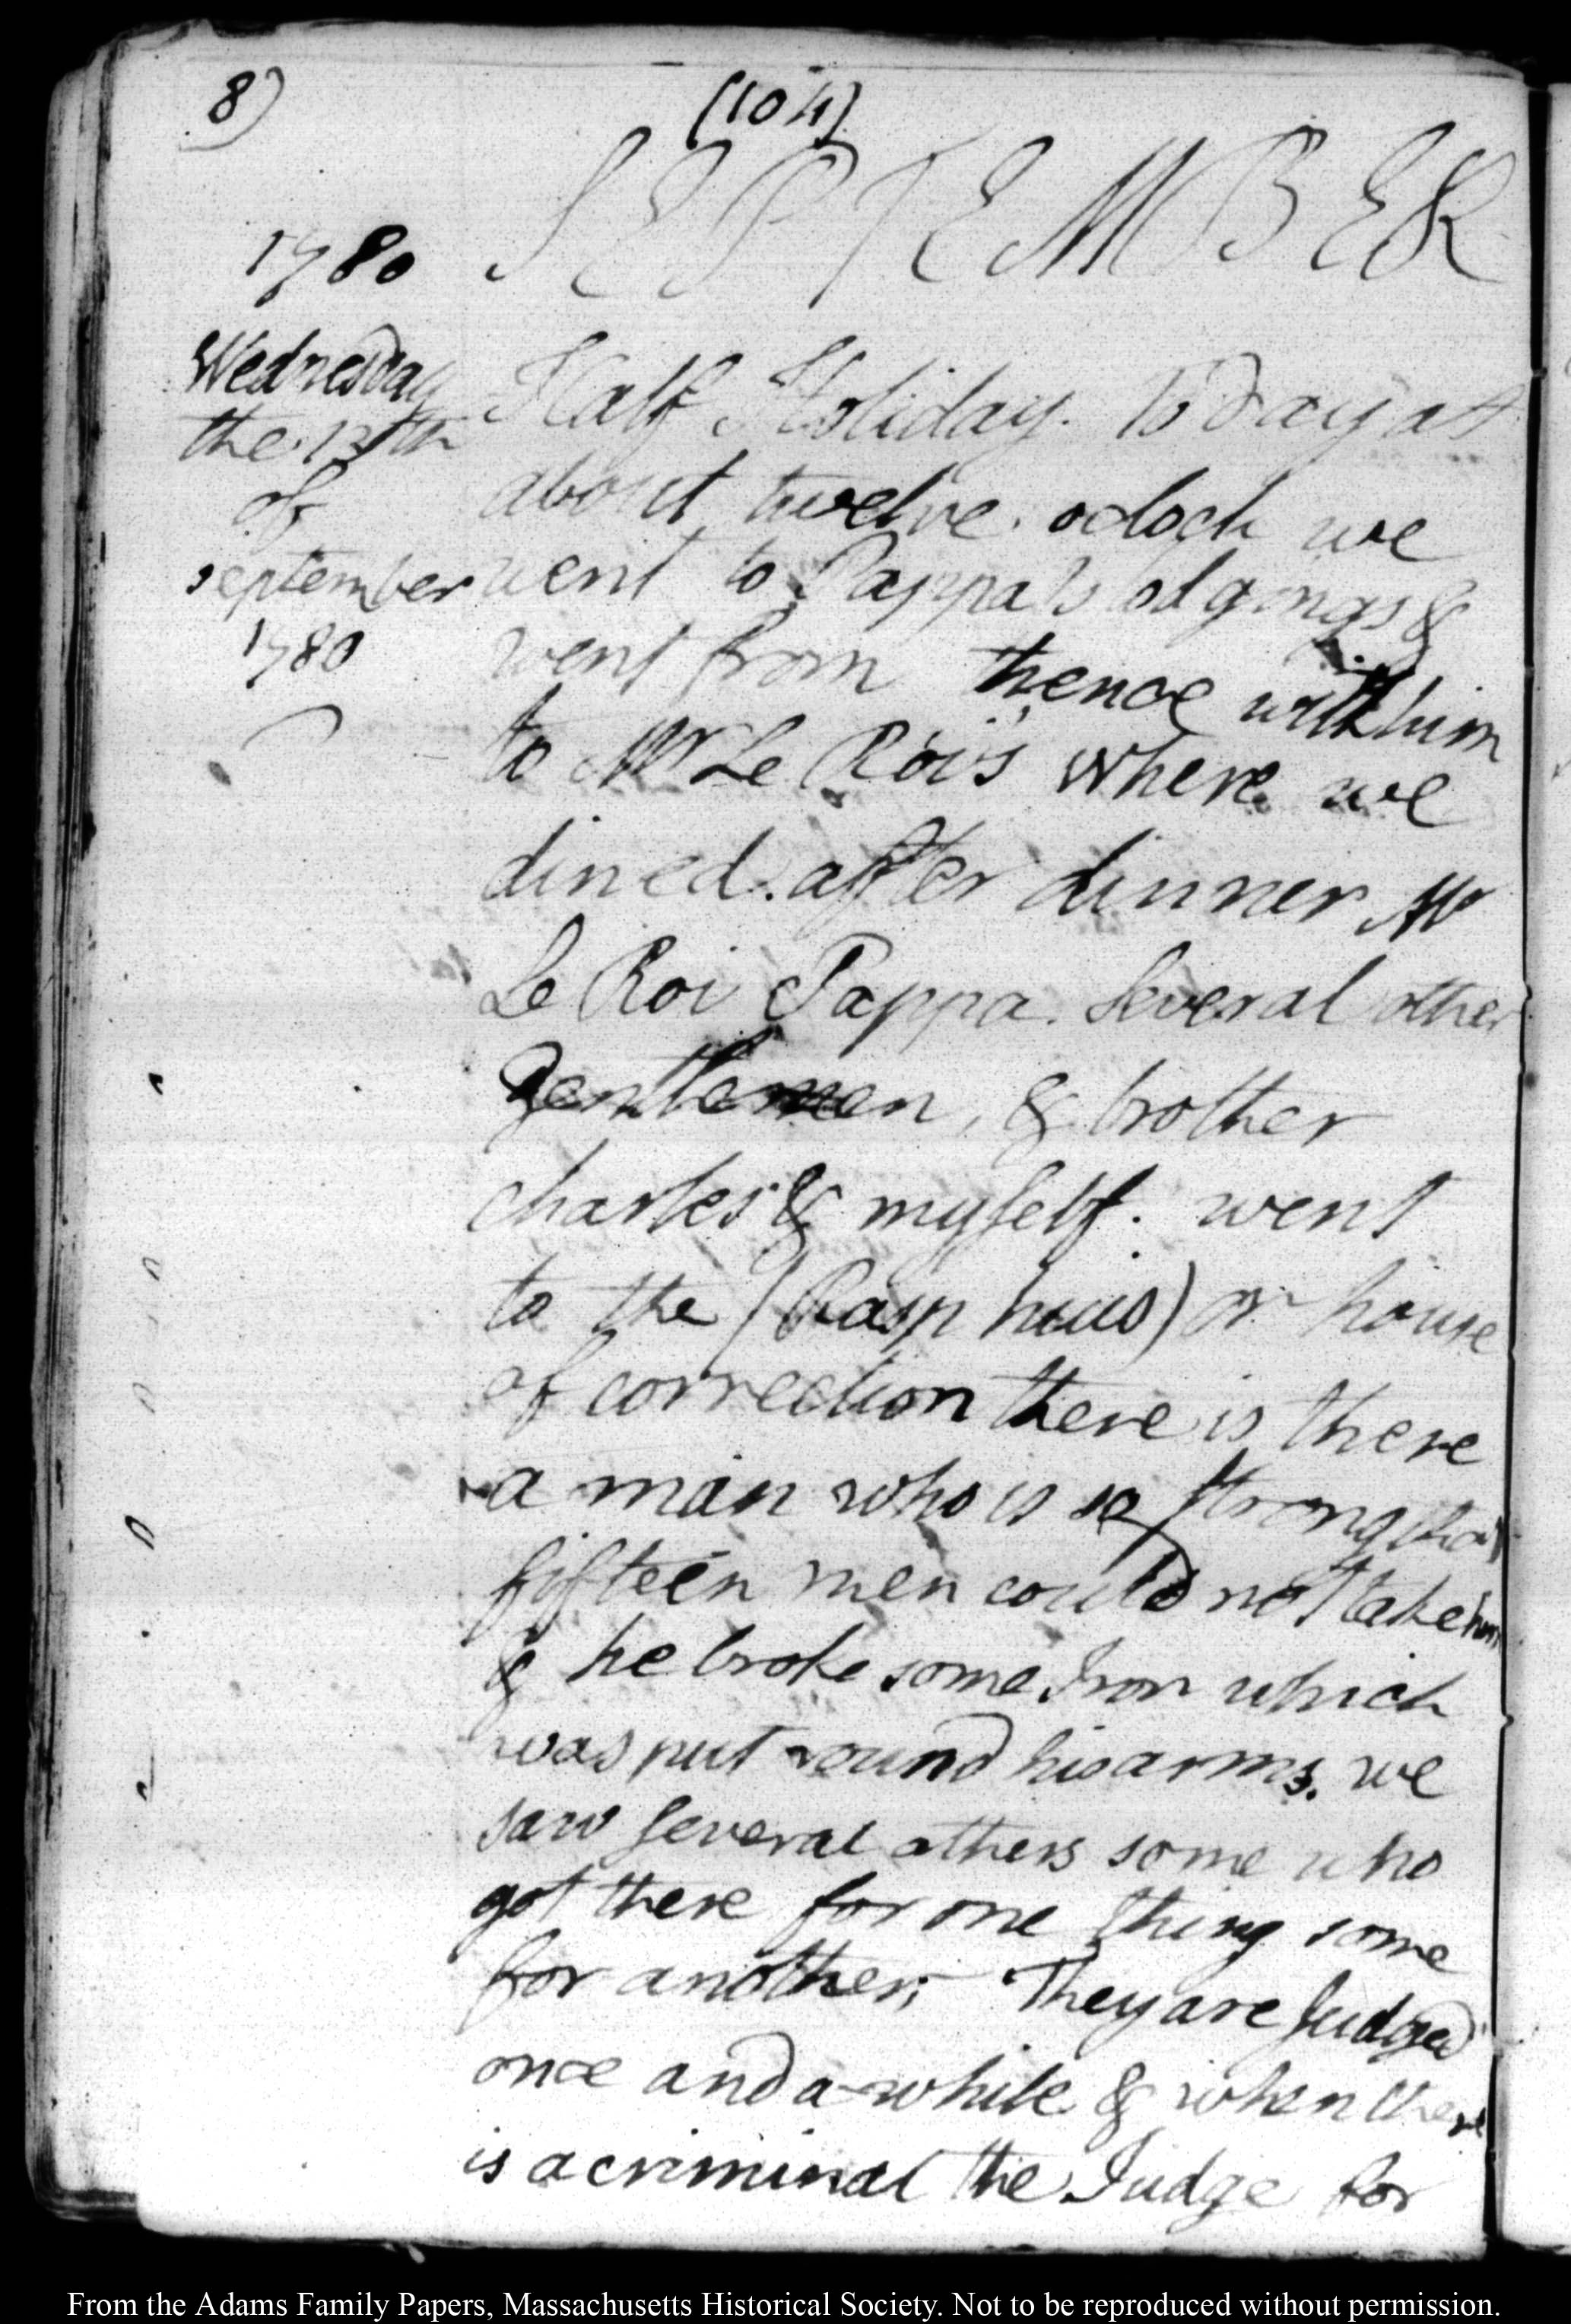 8)
(104)
SEPTEMBER
1780
Wednesday
the 13th
of
september
1780
Half Holiday. To day at
about twelve oclock we
went to Pappa's lodgings &
went from thence with him
to Mr Le Roi's where we
dined. after dinner Mr
Le Roi Pappa. Several other
Gentlemen, & brother
charles & myself. went
to the (Rasp huis) or house
of correction there is there
a man who is so strong that
fifteen men could not take him
& he broke some Iron which
was put round his arms. we
saw several others some who
got there for one thing some
for another; They are Judged
once and a while & when there
is a criminal the Judge for
From the Adams Family Papers, Massachusetts Historical Society. Not to be reproduced without permission.